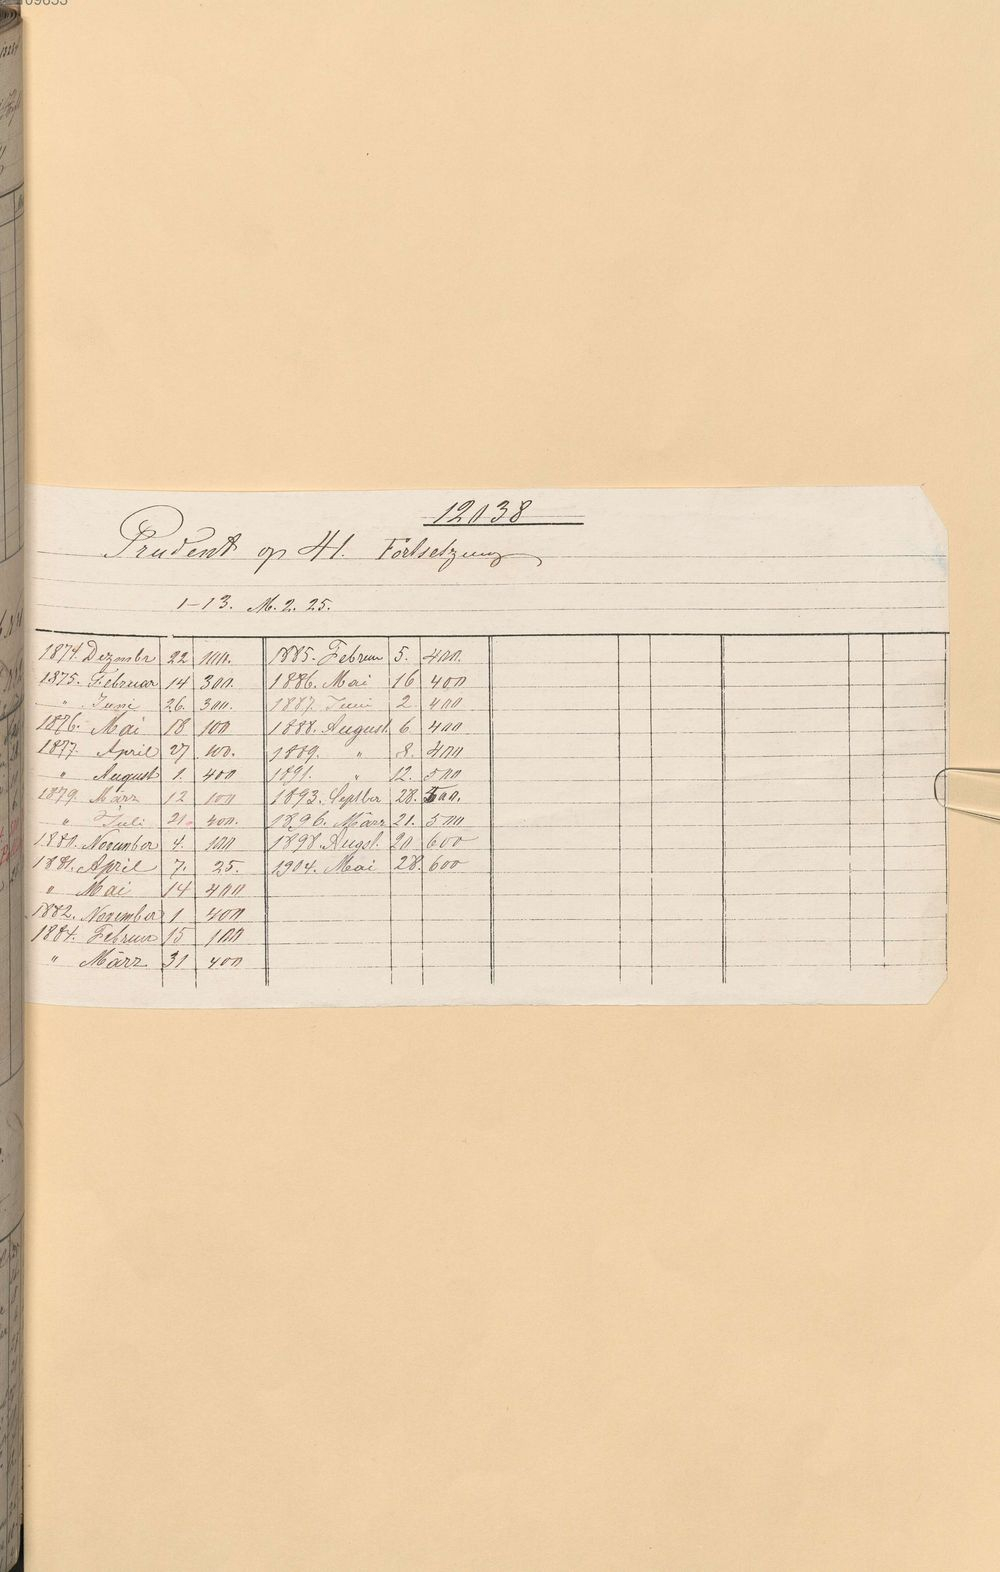 12038
Prudent op 41. Fortsetzung
1-13. M. 2. 25.
1874. Dezmbr 22 100.
1875. Februar 14 300.
" Juni 26. 300.
1876. Mai 18 100
1877. April 27 100.
" August 1. 400
1879. März 12 100
" Juli 21. 400.
1880. November 4. 100
1881. April 7. 25.
" Mai 14 400
1882. November 1 400
1884. Februar 15 100
" März 31 400
1885. Februar 5. 400.
1886. Mai 16 400
1887. Juni 2. 400
1888. August 6 400
1889. " 8. 400
1891. " 12. 500
1893. Septber 28. 500.
1896. März 21. 500
1898. Augst. 20 600
1904. Mai 28. 600